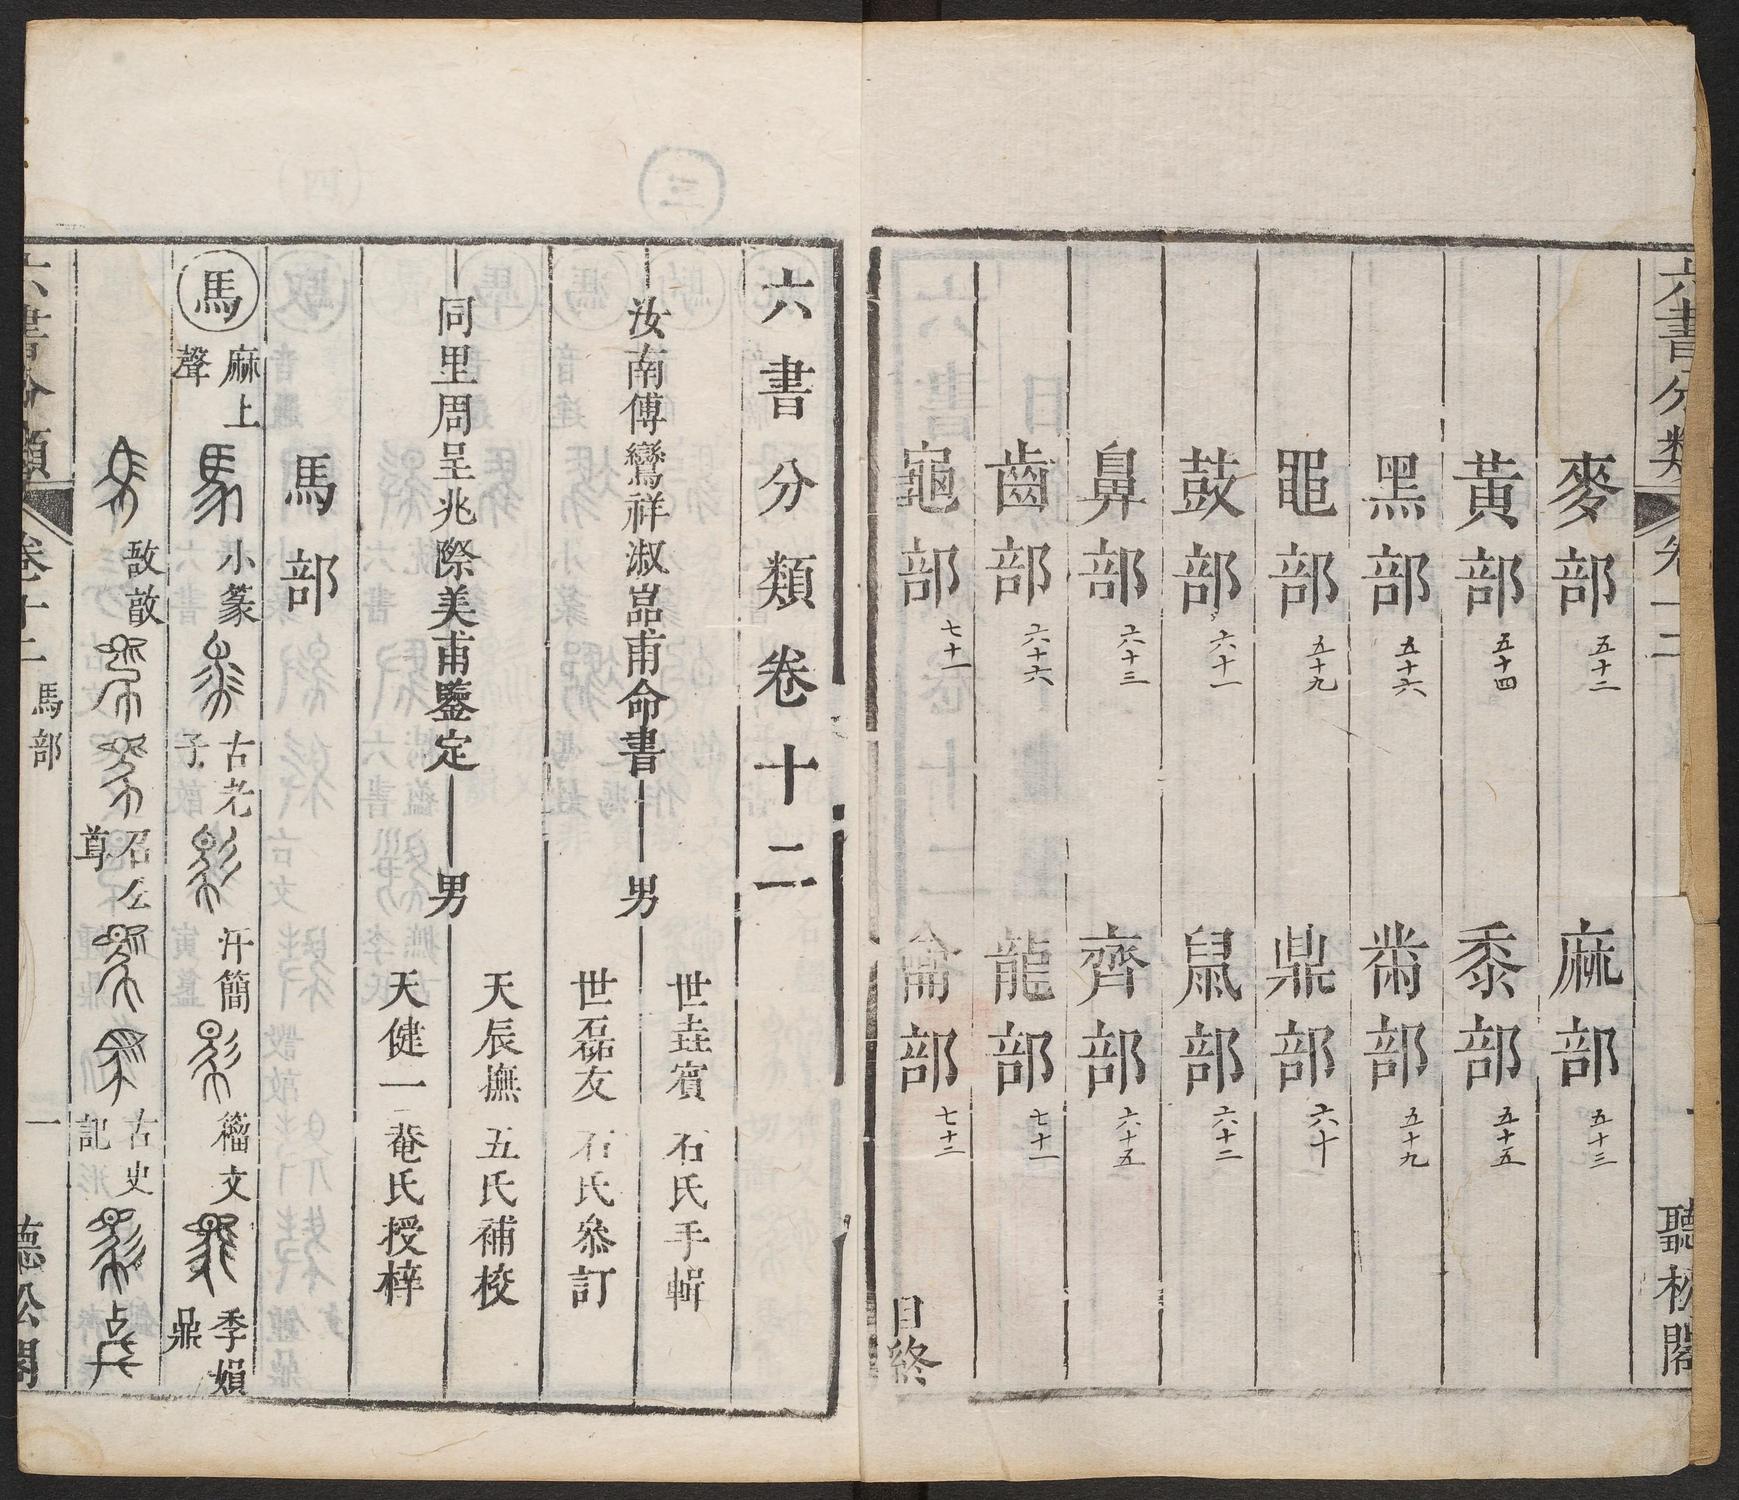 六書分類
卷十二
聽松閣
麥部 五十二
麻部 五十三
黃部 五十四
黍部 五十五
黑部 五十六
黹部 五十九
黽部 五十九
鼎部 六十
鼓部 六十一
鼠部 六十二
鼻部 六十三
齊部 六十五
齒部 六十六
龍部 七十一
龜部 七十一
龠部 七十三
目終
六書分類卷十二
汝南傅鸞祥淑嵓甫命書
男
世垚賓石氏手輯
世磊友石氏叅訂
同里周呈兆際美甫鑒定
男
天辰撫五氏補校
天健一菴氏授梓
馬部
馬 麻上聲 小篆 古老子 汗簡 籀文 季娟鼎
敔敔 召公尊 古史記
六書分類
卷十二 馬部
一
聽松閣